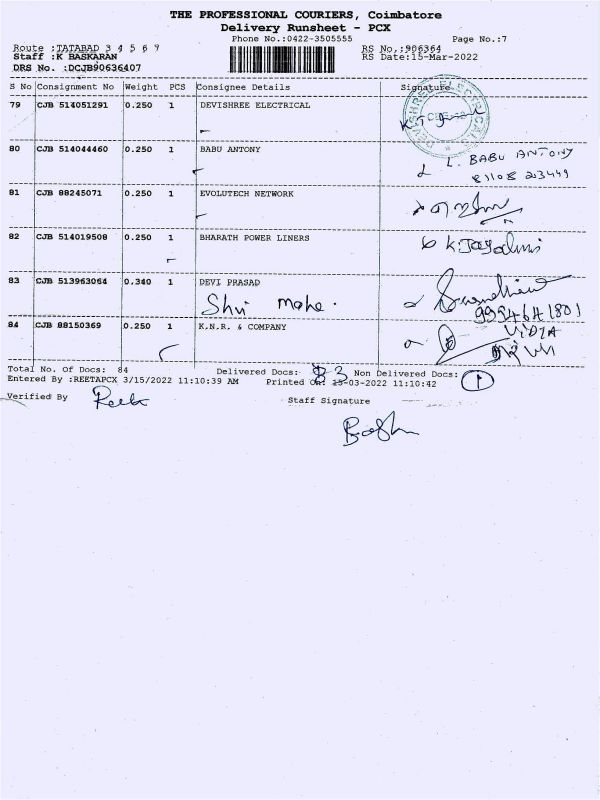 THE PROFESSIONAL COURIERS, Coimbatore
Delivery Runsheet - PCX
Phone No.:0422-3505555 Page No.:7
Route :TATABAD 3 4 5 6 9 RS No.:906364
Staff :K BASKARAN RS Date:15-Mar-2022
DRS No. :DCJB90636407
S No Consignment No Weight PCS Consignee Details Signature
79 CJB 514051291 0.250 1 DEVISHREE ELECTRICAL
DEVISHREE ELECTRICALS
80 CJB 514044460 0.250 1 BABU ANTONY L. BABU ANTONY
81108 203449
81 CJB 88245071 0.250 1 EVOLUTECH NETWORK
82 CJB 514019508 0.250 1 BHARATH POWER LINERS
83 CJB 513963064 0.340 1 DEVI PRASAD
Shri
9994641801
84 CJB 88150369 0.250 1 K.N.R. & COMPANY
Total No. of Docs: 84 Delivered Docs: 83 Non Delivered Docs: 1
Entered By :REETAPCX 3/15/2022 11:10:39 AM Printed On: 15-03-2022 11:10:42
Verified By Staff Signature